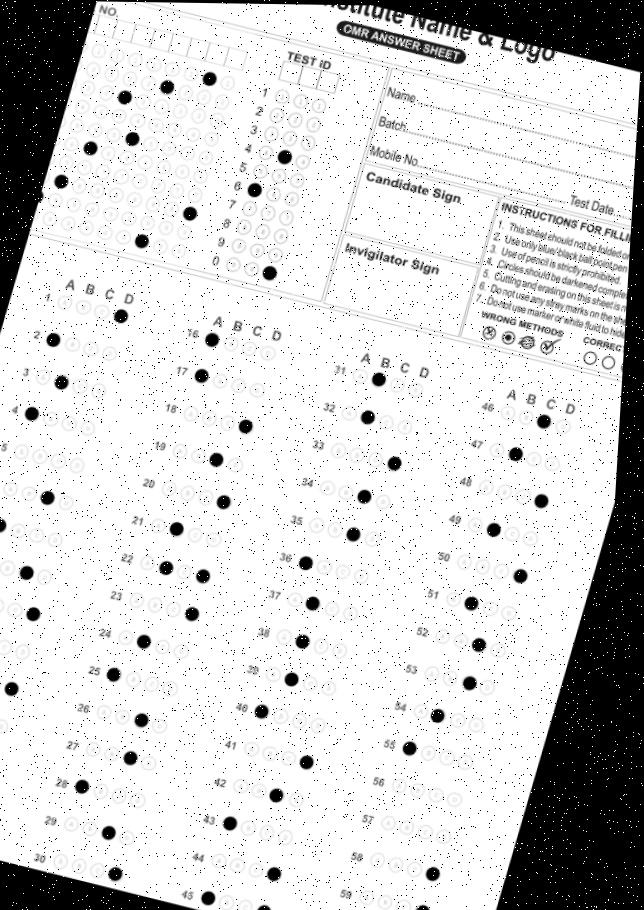 NO.
stitute Name & Logo
OMR ANSWER SHEET
TEST ID
1
2
3
4
5
6
7
8
9
0
Name
Batch
Mobile No.
Test Date
Candidate Sign
Invigilator Sign
INSTRUCTIONS FOR FILLI
1. This sheet should not be folded or
2. Use only blue/black ball point pen
3. Use of pencil is strictly prohibited
4. Circles should be darkened comple
5. Cutting and erasing on this sheet is n
6. Do not use any stray marks on the she
7. Do not use marker or white fluid to hide
WRONG METHODS
CORREC
A B C D
1.
2.
3
4
5
A B C D
16
17
18
19
20
21
22
23
24
25
26
27
28
29
30
A B C D
31
32
33
34
35
36
37
38
39
40
41
42
43
44
45
A B C D
46
47
48
49
50
51
52
53
54
55
56
57
58
59